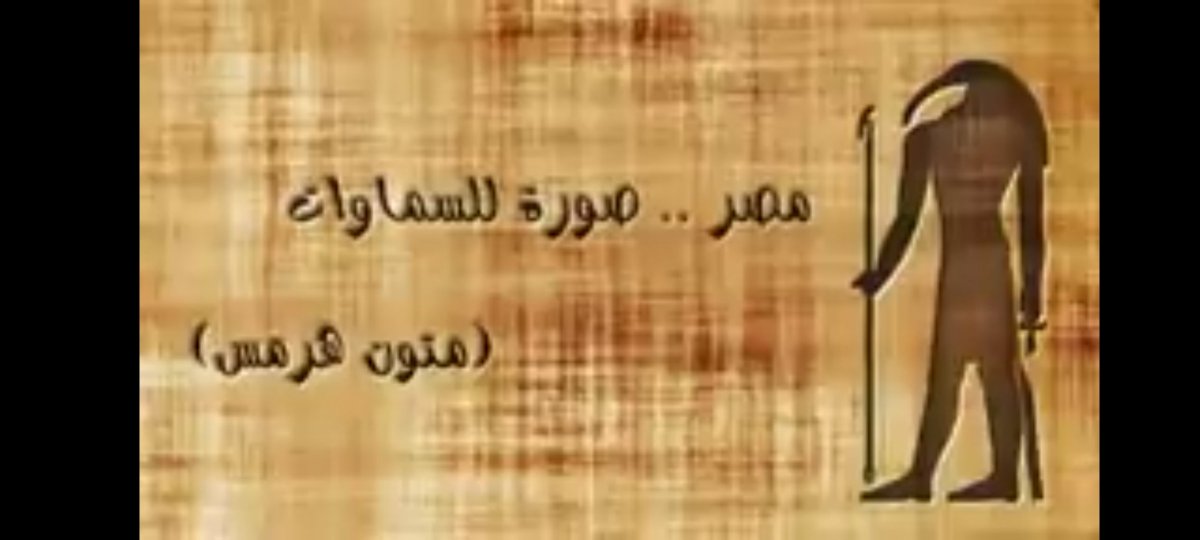 مصر .. صورة للسماوات
(متون هرمس)